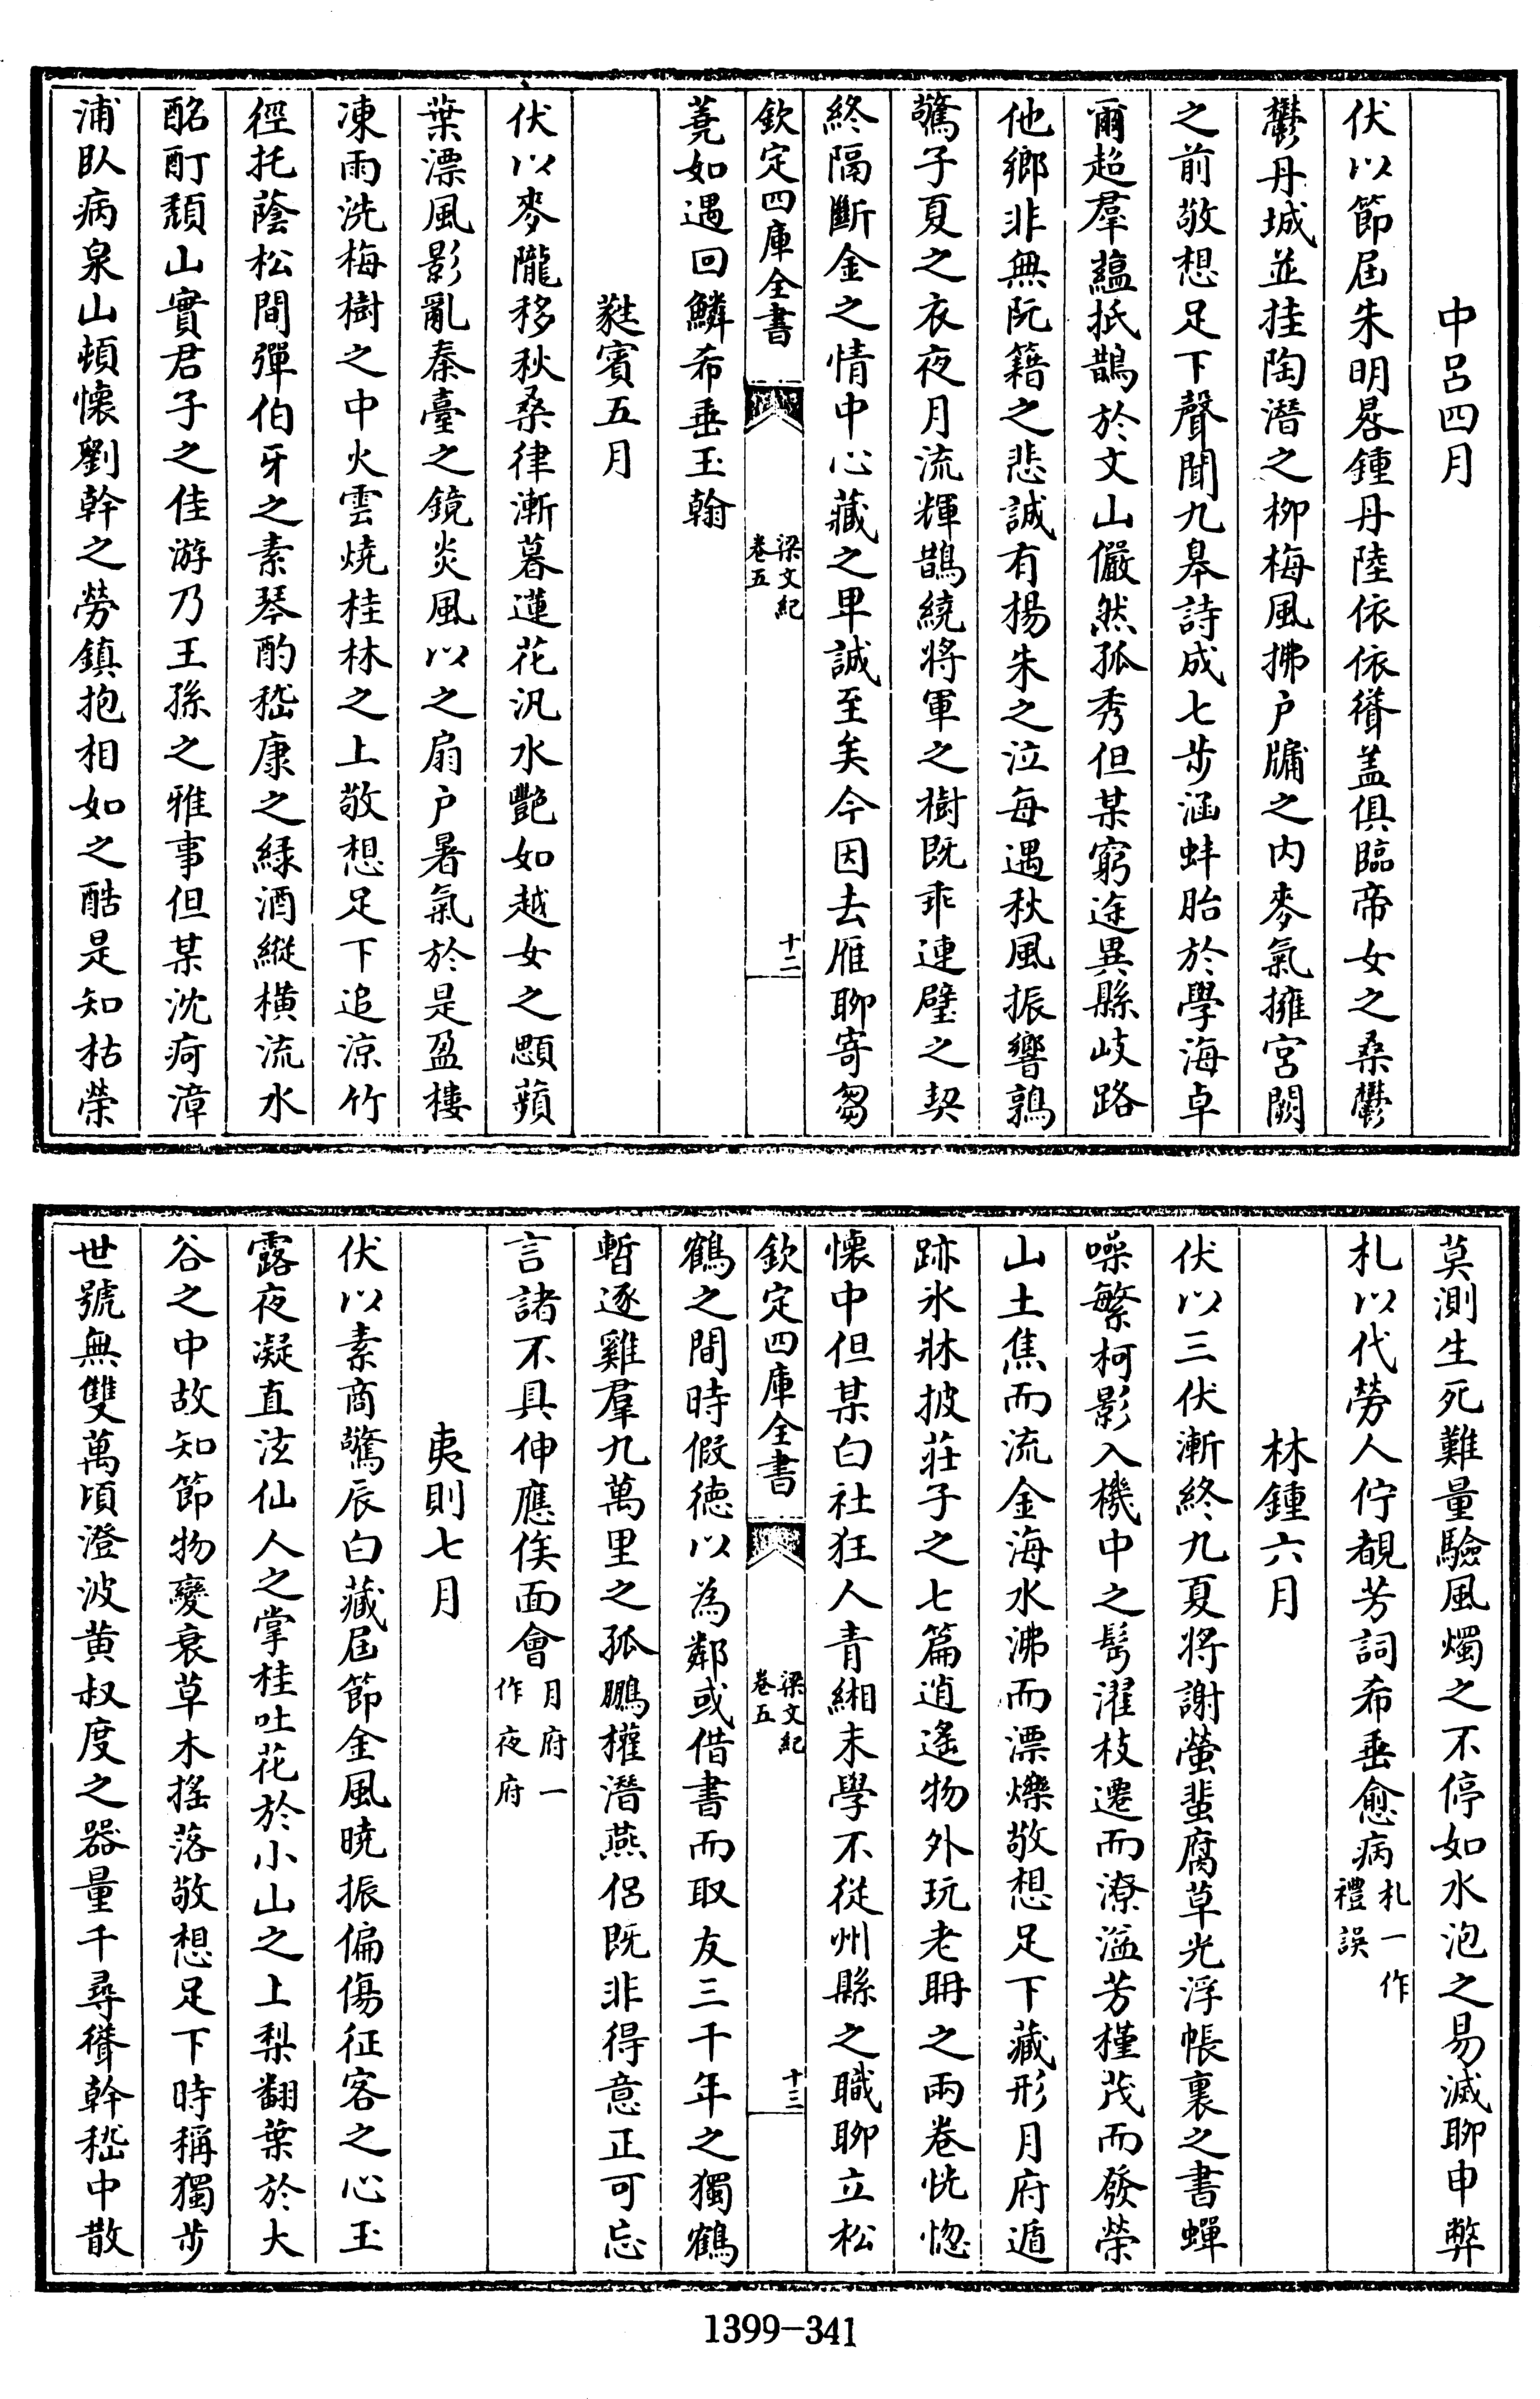 中呂四月
伏以節屆朱明晷鍾丹陸依依聳盖俱臨帝女之桑鬱
鬱丹城並挂陶潛之柳梅風拂户牖之内麥氣擁宮闕
之前敬想足下聲聞九臯詩成七步涵蚌胎於學海卓
爾超羣藴抵鵲於文山儼然孤秀但某窮途異縣岐路
他鄉非無阮籍之悲誠有楊朱之泣每遇秋風振響鶉
驚子夏之衣夜月流輝鵲繞將軍之樹既乖連璧之契
終隔斷金之情中心藏之甲誠至矣今因去雁聊寄芻
欽定四庫全書
梁文紀
卷五
十二
蕘如遇回鱗希垂玉翰
蕤賓五月
伏以麥隴移秋桑律漸暮蓮花汎水艷如越女之顋蘋
葉漂風影亂秦臺之鏡炎風以之扇户暑氣於是盈樓
凍雨洗梅樹之中火雲燒桂林之上敬想足下追涼竹
徑托蔭松間彈伯牙之素琴酌嵇康之緑酒縱横流水
酩酊頽山實君子之佳游乃王孫之雅事但某沈疴漳
浦臥病泉山頓懷劉幹之勞鎮抱相如之酷是知枯榮
莫測生死難量驗風燭之不停如水泡之易滅聊申弊
札以代勞人佇覩芳詞希垂愈病札一作
禮誤
林鍾六月
伏以三伏漸終九夏將謝螢蜚腐草光浮帳裏之書蟬
噪繁柯影入機中之髩濯枝遷而潦溢芳槿茂而發榮
山土焦而流金海水沸而漂爍敬想足下藏形月府遁
跡氷牀披莊子之七篇逍遙物外玩老耼之兩卷恍惚
懷中但某白社狂人青緗末學不從州縣之職聊立松
欽定四庫全書
梁文紀
卷五
十三
鶴之間時假徳以為鄰或借書而取友三千年之獨鶴
暫逐雞羣九萬里之孤鵬權潛燕侶既非得意正可忘
言諸不具伸應俟面會月府一
作夜府
夷則七月
伏以素商驚辰白藏屆節金風曉振偏傷征客之心玉
露夜凝直泫仙人之掌桂吐花於小山之上梨翻葉於大
谷之中故知節物變衰草木搖落敬想足下時稱獨步
世號無雙萬頃澄波黄叔度之器量千尋聳幹嵇中散
1399-341